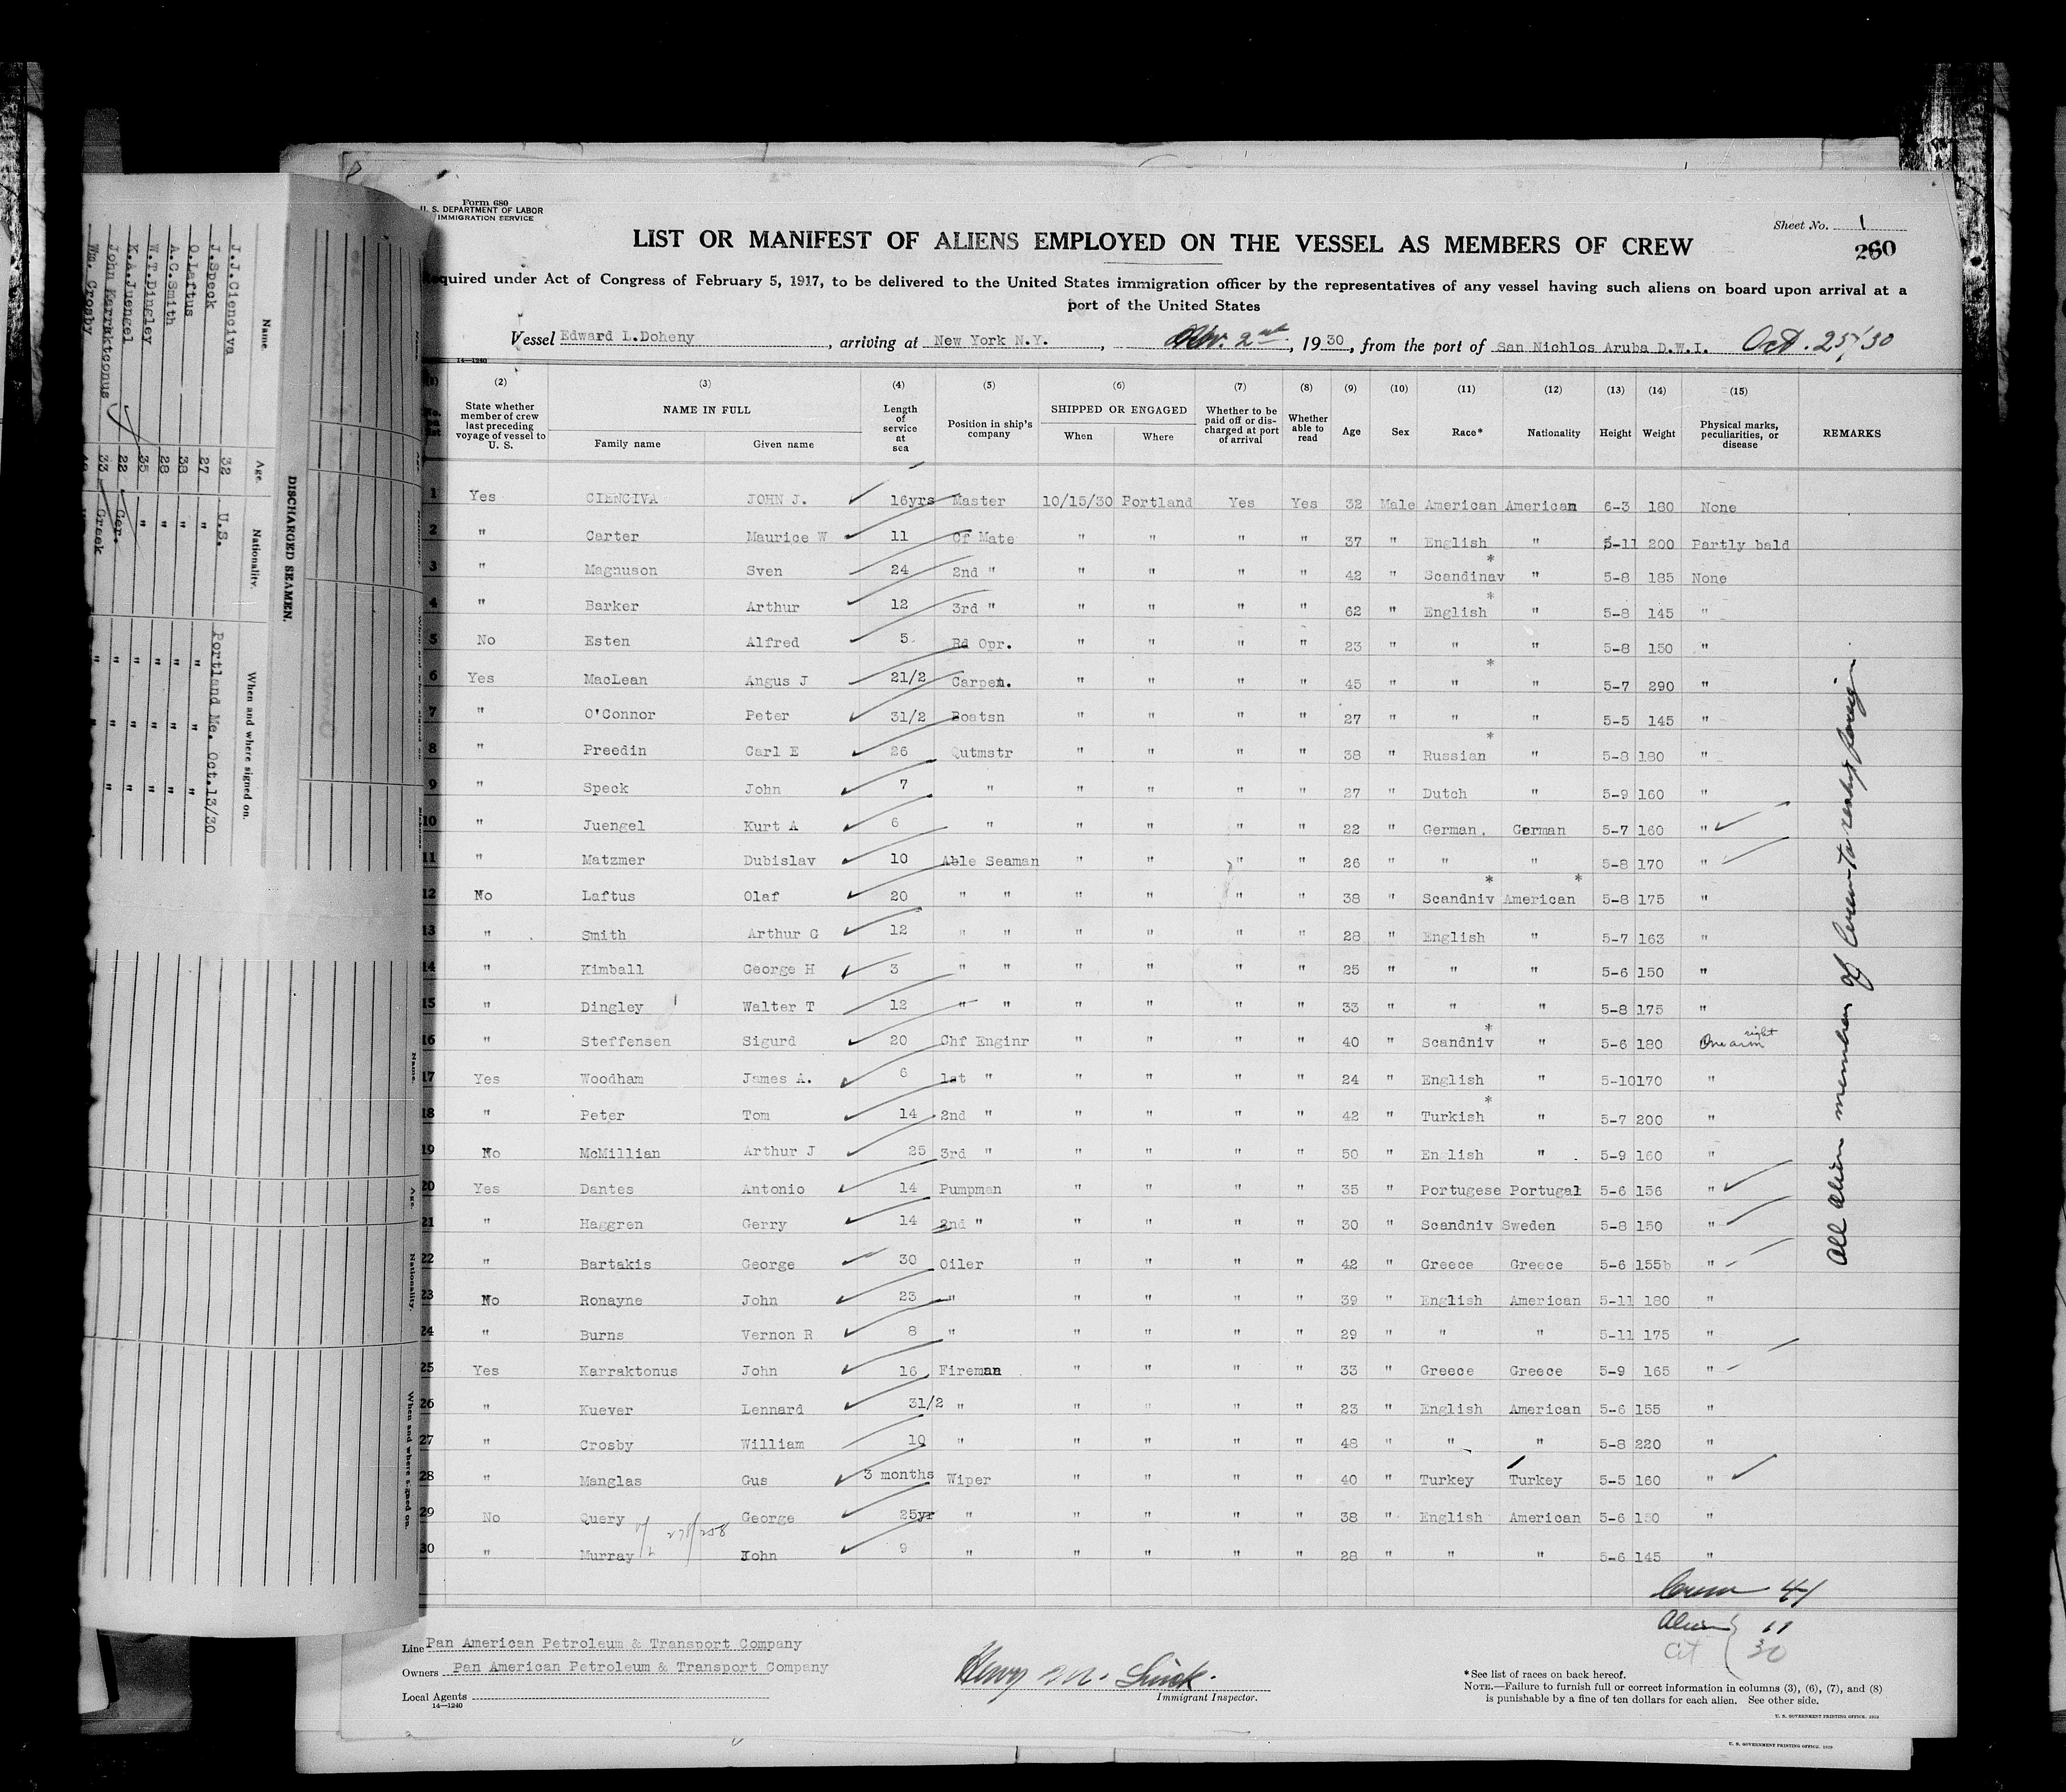 Form 680
U. S. DEPARTMENT OF LABOR
IMMIGRATION SERVICE
Sheet No. 1
260
LIST OR MANIFEST OF ALIENS EMPLOYED ON THE VESSEL AS MEMBERS OF CREW
Required under Act of Congress of February 5, 1917, to be delivered to the United States immigration officer by the representatives of any vessel having such aliens on board upon arrival at a
port of the United States
Vessel Edward L.Doheny, arriving at New York N.Y., Nov. 2nd, 1930, from the port of San Nichlos Aruba D.W.I. Oct. 25/30
14—1240
(2) (3) (4) (5) (6) (7) (8) (9) (10) (11) (12) (13) (14) (15)
State whether member of crew last preceding voyage of vessel to U. S. | NAME IN FULL | Family name | Given name | Length of service at sea | Position in ship's company | SHIPPED OR ENGAGED | When | Where | Whether to be paid off or discharged at port of arrival | Whether able to read | Age | Sex | Race* | Nationality | Height | Weight | Physical marks, peculiarities, or disease | REMARKS
1 Yes CIENCIVA JOHN J. 16yrs Master 10/15/30 Portland Yes Yes 32 Male American American 6-3 180 None
2 " Carter Maurice W 11 Cf Mate " " " " 37 " English " 5-11 200 Partly bald
3 " Magnuson Sven 24 2nd " " " " " 42 " Scandinav * " 5-8 185 None
4 " Barker Arthur 12 3rd " " " " " 62 " English * " 5-8 145 "
5 No Esten Alfred 5 Rd Opr. " " " " 23 " " " 5-8 150 "
6 Yes MacLean Angus J 21/2 Carpen. " " " " 45 " " * " 5-7 290 "
7 " O'Connor Peter 31/2 Boatsn " " " " 27 " " " 5-5 145 "
8 " Preedin Carl E 26 Qutmstr " " " " 38 " Russian * " 5-8 180 "
9 " Speck John 7 " " " " " 27 " Dutch " 5-9 160 "
10 " Juengel Kurt A 6 " " " " " 22 " German. German 5-7 160 "
11 " Matzmer Dubislav 10 Able Seaman " " " " 26 " " " 5-8 170 "
12 No Laftus Olaf 20 " " " " " " 38 " Scandniv * American * 5-8 175 "
13 " Smith Arthur G 12 " " " " " " 28 " English " 5-7 163 "
14 " Kimball George H 3 " " " " " " 25 " " " 5-6 150 "
15 " Dingley Walter T 12 " " " " " " 33 " " " 5-8 175 "
16 " Steffensen Sigurd 20 Chf Enginr " " " " 40 " Scandniv * " 5-6 180 One right arm
17 Yes Woodham James A. 6 1st " " " " " 24 " English " 5-10 170 "
18 " Peter Tom 14 2nd " " " " " 42 " Turkish * " 5-7 200 "
19 No McMillian Arthur J 25 3rd " " " " " 50 " En lish " 5-9 160 "
20 Yes Dantes Antonio 14 Pumpman " " " " 35 " Portugese Portugal 5-6 156 "
21 " Haggren Gerry 14 2nd " " " " " 30 " Scandniv Sweden 5-8 150 "
22 " Bartakis George 30 Oiler " " " " 42 " Greece Greece 5-6 155b "
23 No Ronayne John 23 " " " " " 39 " English American 5-11 180 "
24 " Burns Vernon R 8 " " " " " 29 " " " 5-11 175 "
25 Yes Karraktonus John 16 Fireman " " " " 33 " Greece Greece 5-9 165 "
26 " Kuever Lennard 31/2 " " " " " 23 " English American 5-6 155 "
27 " Crosby William 10 " " " " " 48 " " " 5-8 220 "
28 " Manglas Gus 3 months Wiper " " " " 40 " Turkey Turkey 5-5 160 "
29 No Query George 25yr " " " " " 38 " English American 5-6 150 "
30 " Murray John 9 " " " " " 28 " " " 5-6 145 "
278/258
All alien members of crew to reship foreign
Crew 41
Alien 11
Cit 30
Line Pan American Petroleum & Transport Company
Owners Pan American Petroleum & Transport Company
Local Agents
14—1240
Immigrant Inspector.
* See list of races on back hereof.
NOTE.—Failure to furnish full or correct information in columns (3), (6), (7), and (8)
is punishable by a fine of ten dollars for each alien. See other side.
U. S. GOVERNMENT PRINTING OFFICE.
U. S. GOVERNMENT PRINTING OFFICE. 1929
DISCHARGED SEAMEN.
Name. Age. Nationality. When and where signed on.
J.J.Cienciva 32 U.S. Portland Me. Oct.13/30
J.Speck 27 " " " "
O.Laftus 38 " " " "
A.G.Smith 28 " " " "
W.T.Dingley 35 " " " "
K.A.Juengel 22 Ger. " " "
John Karraktconus 33 Greek " " "
Wm. Crosby
Name. Age. Nationality. When and where signed on.